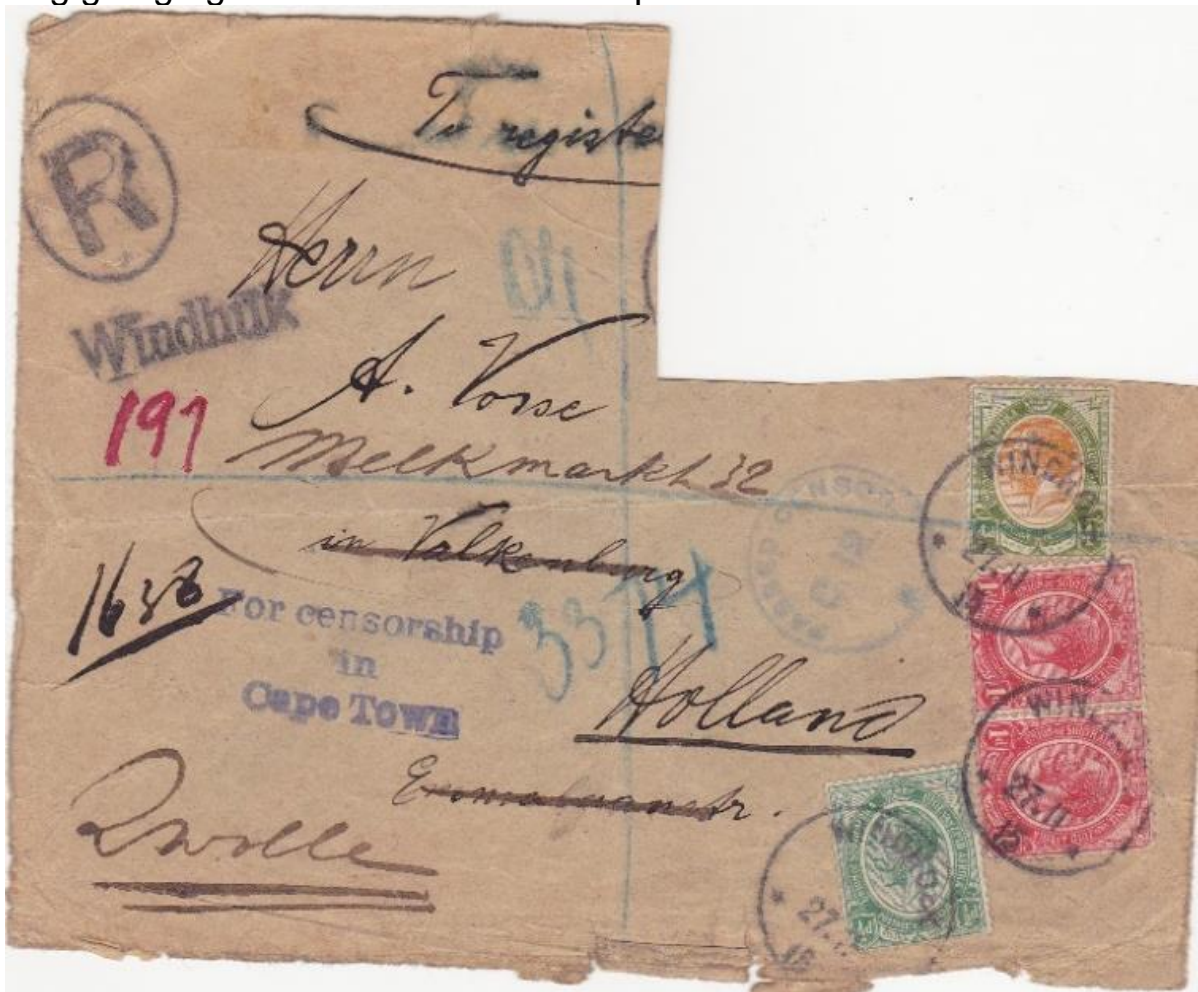 To registe
R
Herrn
Windhuk
A. Vosse
197
Melkmarkt 32
in Valkenburg
1638
For censorship
in
Cape Town
33
Holland
Zwolle
PASSED CENSOR
WINDHU
27.11
WIN
27.11
27.